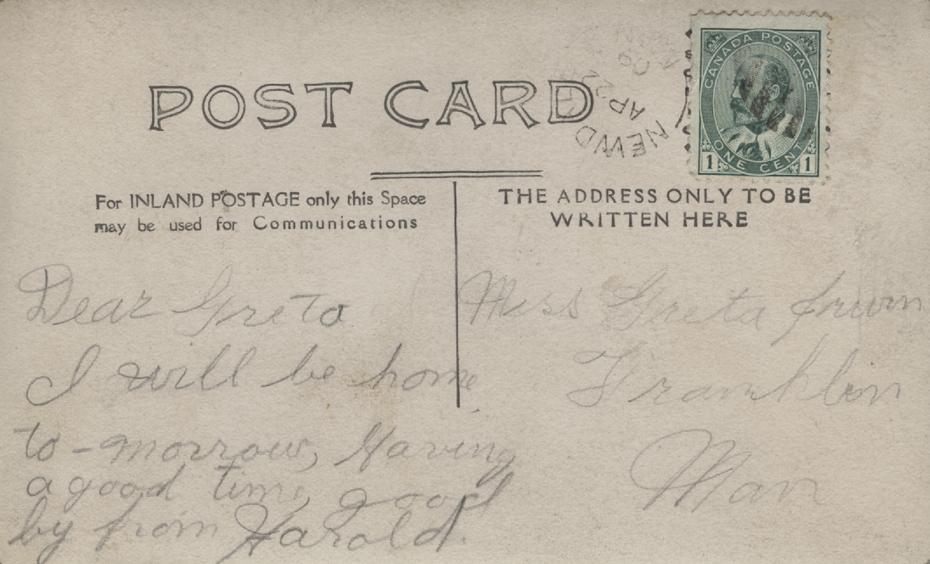 POST CARD
CANADA POSTAGE
ONE CENT
1 1
NEWD
AP 22
For INLAND POSTAGE only this Space
may be used for Communications
THE ADDRESS ONLY TO BE
WRITTEN HERE
Dear Greta
I will be home
to-morrow, Having
a good time, good
by from Harold.
Miss Greta Irwin
Franklin
Man